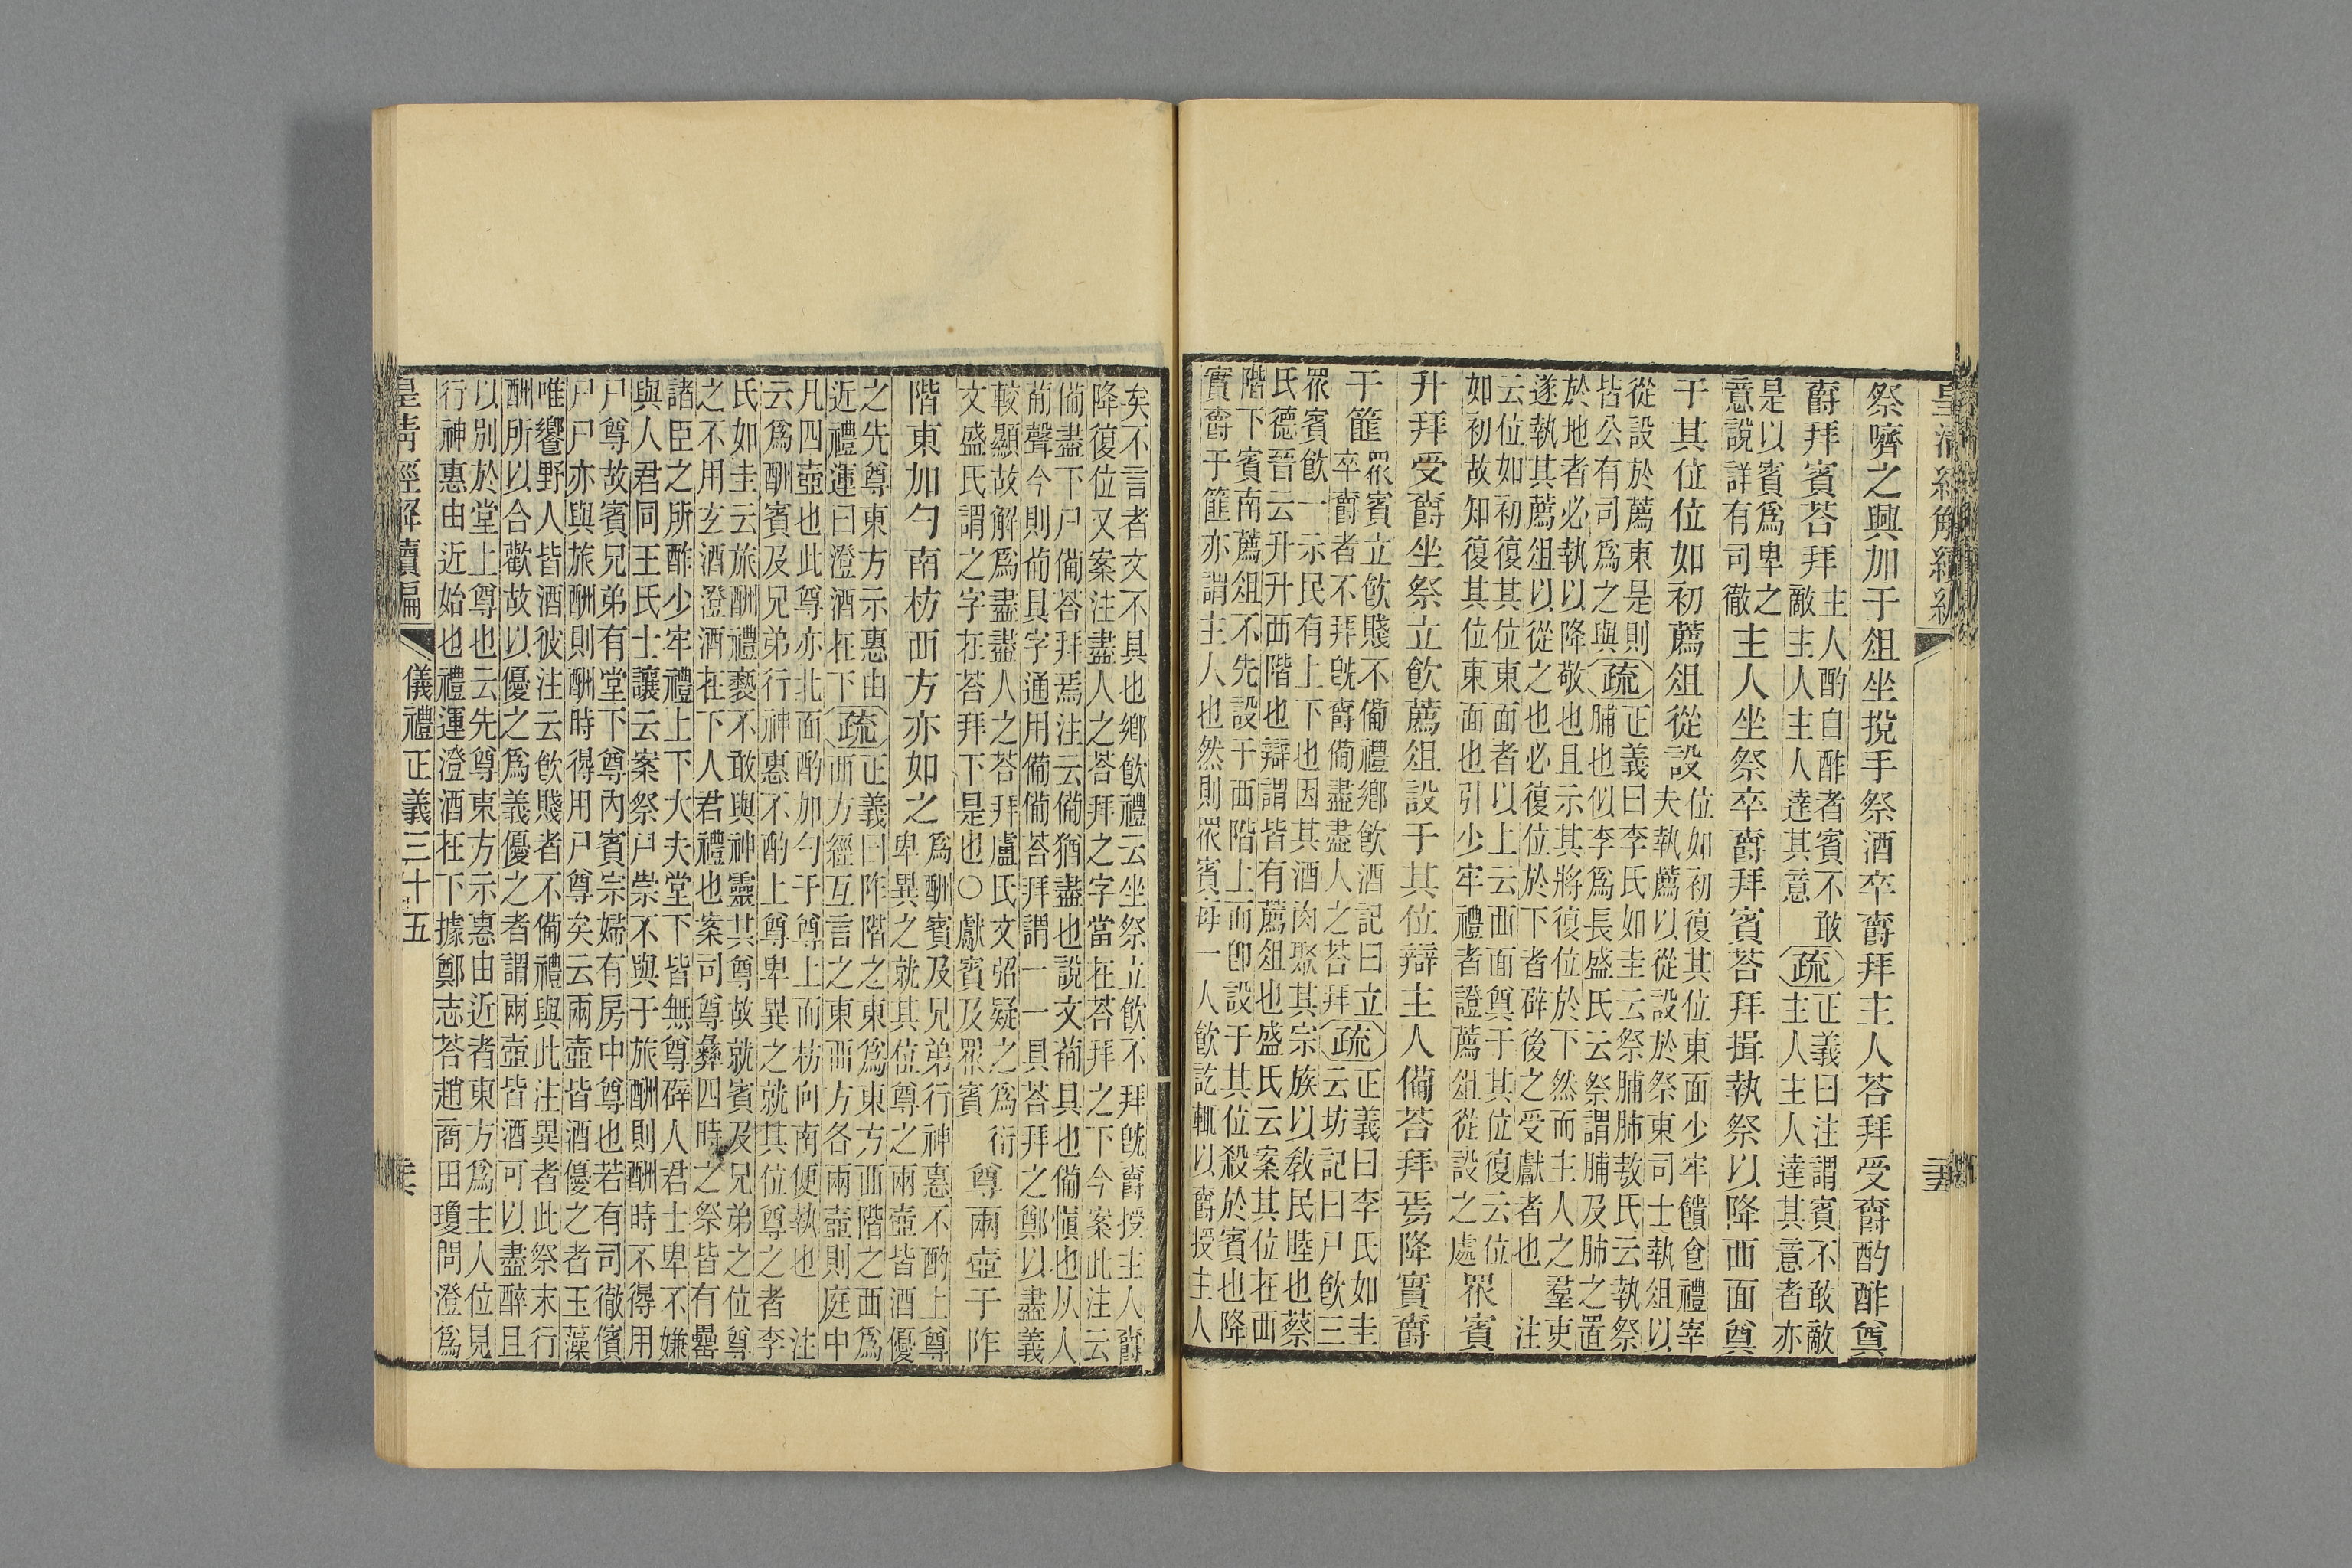 皇清經解續編
祭嚌之興加于俎坐挩手祭酒卒爵拜主人荅拜受爵酌酢奠
爵拜賓荅拜主人酌自酢者賓不敢敵主人主人達其意疏正義曰注謂賓不敢敵主人主人達其意者亦
是以賓爲卑之意說詳有司徹主人坐祭卒爵拜賓荅拜揖執祭以降西面奠
于其位位如初薦俎從設位如初復其位東面少牢饋食禮宰夫執薦以從設於祭東司士執俎以
從設於薦東是則皆公有司爲之與疏正義曰李氏如圭云祭脯肺敖氏云執祭脯也似李爲長盛氏云祭謂脯及肺之置
於地者必執以降敬也且示其將復位於下然而主人之羣吏
遂執其薦俎以從之也必復位於下者辟後之受獻者也 注
云位如初復其位東面者以上云西面奠于其位復云位
如初故知復其位東面也引少牢禮者證薦俎從設之處衆賓
升拜受爵坐祭立飮薦俎設于其位辯主人備荅拜焉降實爵
于篚衆賓立飮賤不備禮鄉飮酒記曰立卒爵者不拜旣爵備盡盡人之荅拜疏正義曰李氏如圭云坊記曰尸飮三
衆賓飮一示民有上下也因其酒肉聚其宗族以敎民睦也蔡
氏德晉云升升西階也辯謂皆有薦俎也盛氏云案其位在西
階下賓南薦俎不先設于西階上而卽設于其位殺於賓也降
實爵于篚亦謂主人也然則衆賓每一人飮訖輒以爵授主人
矣不言者文不具也鄉飮禮云坐祭立飮不拜旣爵授主人爵
降復位又案注盡人之荅拜之字當在荅拜之下今案此注云
備盡下尸備荅拜焉注云備猶盡也說文葡具也備愼也从人
葡聲今則葡具字通用備備荅拜謂一一具荅拜之鄭以盡義
較顯故解爲盡盡人之荅拜盧氏文弨疑之爲衍
文盛氏謂之字在荅拜下是也○獻賓及衆賓尊兩壺于阼
階東加勺南枋西方亦如之爲酬賓及兄弟行神惠不酌上尊卑異之就其位尊之兩壺皆酒優
之先尊東方示惠由近禮運曰澄酒在下疏正義曰阼階之東爲東方西階之西爲西方經互言之東西方各兩壺則庭中
凡四壺也此尊亦北面酌加勺于尊上而枋向南便執也 注
云爲酬賓及兄弟行神惠不酌上尊卑異之就其位尊之者李
氏如圭云旅酬禮褻不敢與神靈其尊故就賓及兄弟之位尊
之不用玄酒澄酒在下人君禮也案司尊彝四時之祭皆有罍
諸臣之所酢少牢禮上下大夫堂下皆無尊辟人君士卑不嫌
與人君同王氏士讓云案祭尸崇不與于旅酬則酬時不得用
尸尊故賓兄弟有堂下尊內賓宗婦有房中尊也若有司徹儐
尸尸亦與旅酬則酬時得用尸尊矣云兩壺皆酒優之者玉藻
唯饗野人皆酒彼注云飮賤者不備禮與此注異者此祭末行
酬所以合歡故以優之爲義優之者謂兩壺皆酒可以盡醉且
以別於堂上尊也云先尊東方示惠由近者東方爲主人位見
行神惠由近始也禮運澄酒在下據鄭志荅趙商田瓊問澄爲
皇清經解續編 儀禮正義三十五